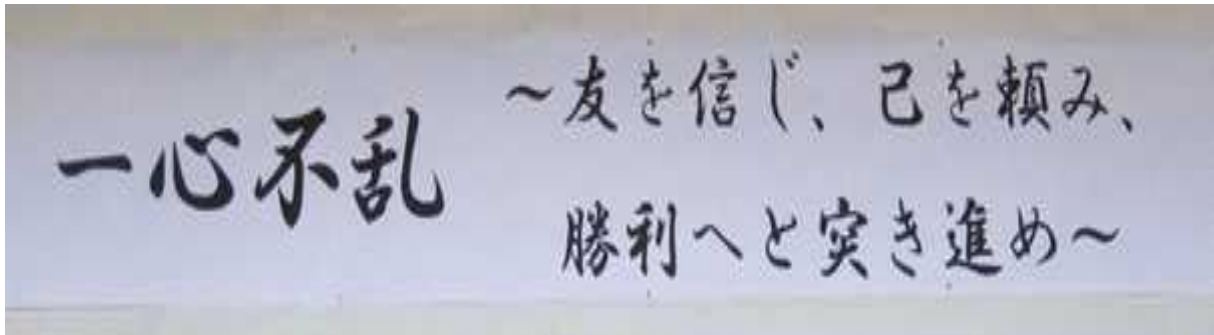 一心不乱
～友を信じ、己を頼み、
勝利へと突き進め～